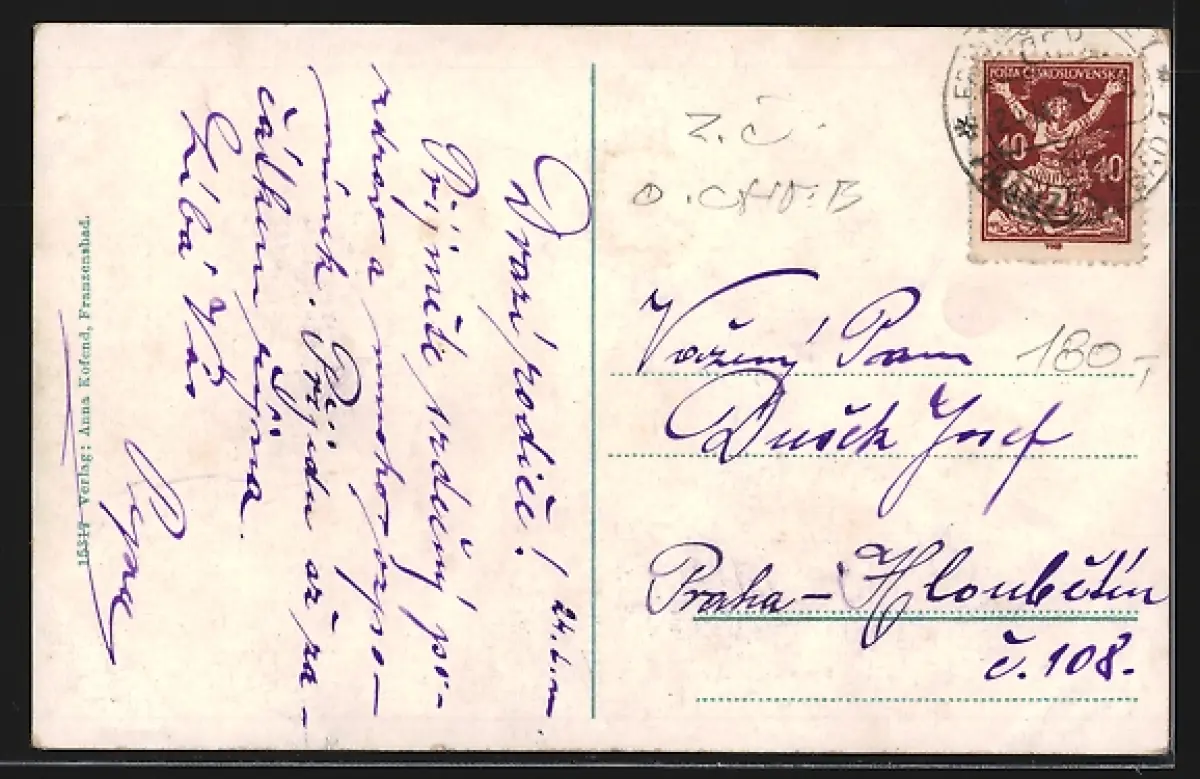 Drazí rodiče!
24.6.m.
Přijměte srdečný po-
zdrav a mnoho vzpo-
mínek. Přijdu až za-
čátkem října.
Líbá Vás
15317 Verlag: Anna Kofend, Franzensbad.
POŠTA ČESKOSLOVENSKÁ
40 40
Z.Č.
Vážený Pan
160,-
Dušek Josef
Praha-Hloubětín
č. 108.